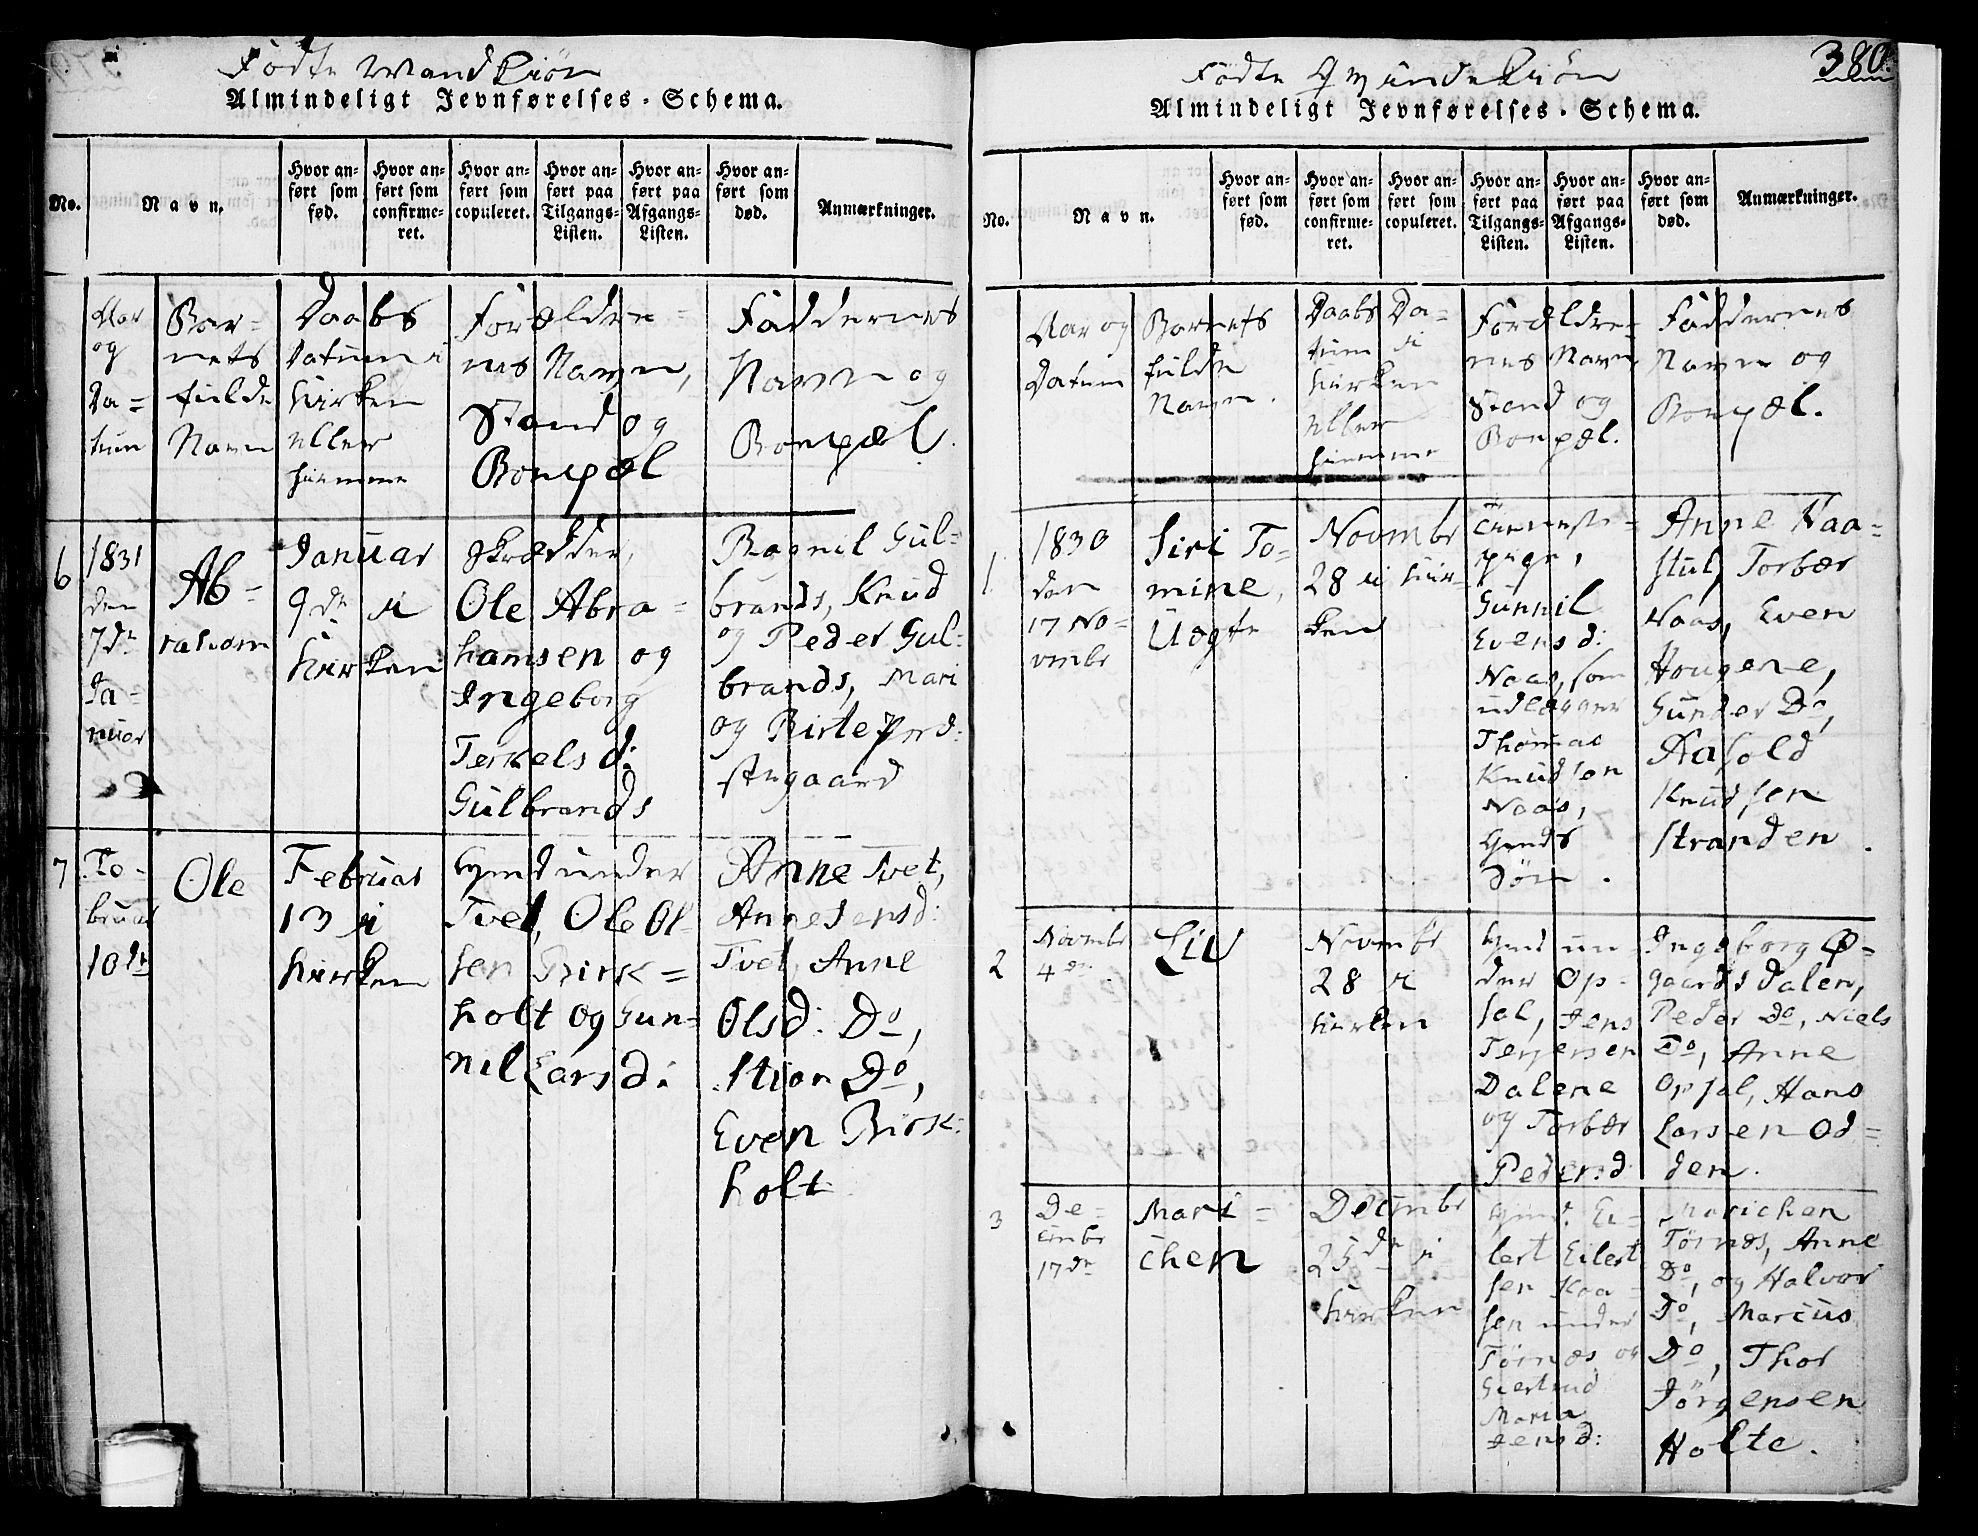 Fødte Mandkiön
Almindeligt Jevnførelses-Schema.
No.
Navn.
Hvor an-
ført som
fød.
Hvor an-
ført som
confirme-
ret.
Hvor an-
ført som
copuleret.
Hvor an-
ført paa
Tilgangs-
Listen.
Hvor an-
ført paa
Afgangs-
Listen.
Hvor an-
ført som
død.
Anmærkninger.
Aar
og
Da=
tum
Bar=
nets
fulde
Navn
Daabs
Datum i
Kirken
eller
hiemme
Forældre=
nes Navn,
Stand og
Bonpæl
Faddernes
Navn og
Bonpæl.
6
1831
den
7de
Ja=
nuar
Ab=
raham
Januar
9de i
Kirken
Skrædder,
Ole Abra=
hamsen og
Ingeborg
Terkelsd:
Gulbrands
Ragnil Gul=
brands, Knud
og Peder Gul=
brands, Mari
og Birte
7
Fe-
bruar
10de
Ole
Februar
13 i
Kirken
under
Tvet, Ole Ol=
sen Birk=
holt og Gun=
nil Larsd:
Anne Tvet,
Anne Jensd:
Tvet, Anne
Olsd: Do,
Stian Do,
Even Birk=
holt
380.
Fødte Qvindekiön
Almindeligt Jevnførelses-Schema.
No.
Navn.
Hvor an-
ført som
fød.
Hvor an-
ført som
confirme-
ret.
Hvor an-
ført som
copuleret.
Hvor an-
ført paa
Tilgangs-
Listen.
Hvor an-
ført paa
Afgangs-
Listen.
Hvor an-
ført som
død.
Anmærkninger.
Aar og
Datum
Barnets
fulde
Navn.
Daabs Da=
tum i
Kirken
eller
hiemme
Forældre=
nes Navn
Stand og
Bonpæl.
Faddernes
Navn og
Bonpæl.
1
1830
den
17 No=
vmbr
Siri To=
mine,
Uægte
Novmbr
28 i Kir=
ken
Tieneste=
pige,
Gunnil
Evensd:
Naas, som
udlægger
Thomas
Knudsen
Naas,
Søn.
Anne Naa=
stul, Torbær
Naas, Even
Haugene,
Gunder Do,
Aasold
Knudsen
Stranden.
2
Novmbr
4de
Liv
Novmbr
28 i
Kirken
un=
der Op=
sal, Jens
Terjersen
Dalene
og Torbær
Pedersd
Ingeborg Ø=
gaardsdalen,
Peder Do, Niels
Do, Anne
Opsal, Hans
Larsen Od=
den.
3
De=
cmbr
17de
Mari=
chen
Decmbr
25de i
Kirken
Ei=
lert Eilert
sen Kaa=
sen under
Törnæs og
Giertrud
Maria
Jensd:
Marichen
Törnæs, Anne
Do, og Halvor
Do, Marcus
Do, Thor
Jörgensen
Holte.